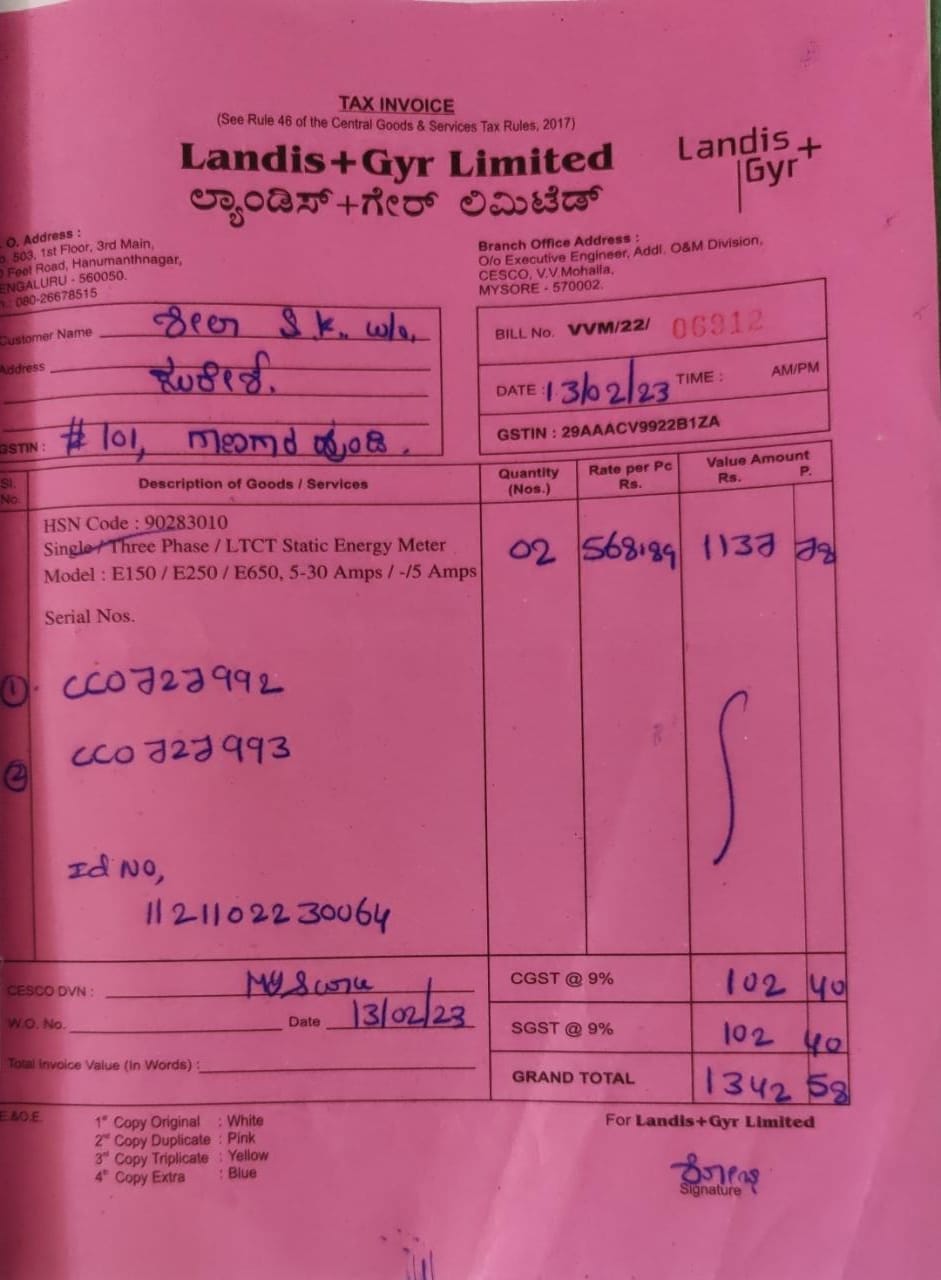 TAX INVOICE
(See Rule 46 of the Central Goods & Services Tax Rules, 2017)
Landis+Gyr Limited
ಲ್ಯಾಂಡಿಸ್+ಗೇರ್ ಲಿಮಿಟೆಡ್
Landis+
Gyr
O. Address :
503, 1st Floor, 3rd Main,
Feet Road, Hanumanthnagar,
ENGALURU - 560050.
: 080-26678515
Branch Office Address :
O/o Executive Engineer, Addl. O&M Division,
CESCO, V.V.Mohalla,
MYSORE - 570002.
Customer Name S.K. w/o,
Address ಸುರೇಶ್.
GSTIN : #101,
BILL No. VVM/22/ 06912
DATE : 13/02/23 TIME : AM/PM
GSTIN : 29AAACV9922B1ZA
Sl. No. Description of Goods / Services Quantity (Nos.) Rate per Pc Rs. Value Amount Rs. P.
HSN Code : 90283010
Single / Three Phase / LTCT Static Energy Meter 02 568.89 1137 78
Model : E150 / E250 / E650, 5-30 Amps / -/5 Amps
Serial Nos.
1 CC0727992
2 CC0727993
Id No,
11211022 30064
CESCO DVN : Mysore
W.O. No. Date 13/02/23
Total Invoice Value (In Words) :
CGST @ 9% 102 40
SGST @ 9% 102 40
GRAND TOTAL 1342 58
E.&O.E.
1st Copy Original : White
2nd Copy Duplicate : Pink
3rd Copy Triplicate : Yellow
4th Copy Extra : Blue
For Landis+Gyr Limited
Signature